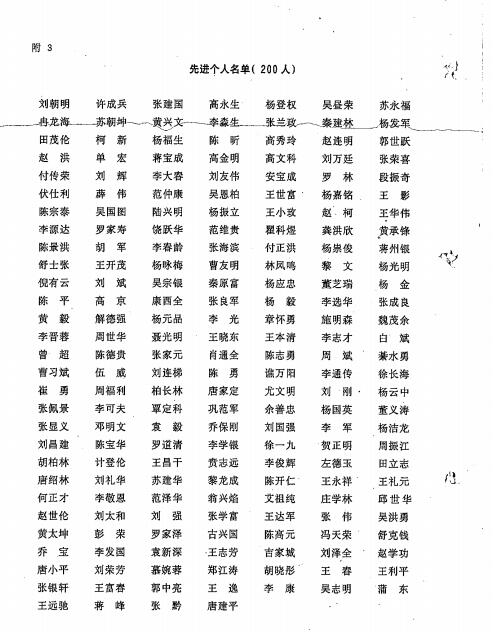 附 3
先进个人名单(200人)
刘朝明 许成兵 张建国 高永生 杨登权 吴昼荣 苏永福
冉龙海 苏朝坤 黄兴文 李淼生 张兰政 秦建林 杨发军
田茂伦 柯 新 杨福生 陈 昕 高秀玲 赵连明 郭世跃
赵 洪 单 宏 蒋宝成 高金明 高文科 刘万廷 张荣喜
付传荣 刘 辉 李大春 刘友伟 安宝成 罗 林 段振奇
伏仕利 薛 伟 范仲康 吴恩柏 王世富 杨嘉铭 王 影
陈宗泰 吴国图 陆兴明 杨振立 王小玫 赵 柯 王华伟
李源达 罗家寿 饶跃华 范维贵 瞿科煜 龚洪欣 黄承锋
陈景洪 胡 军 李春龄 张海滨 付正洪 杨崇俊 蒋州银
舒士张 王开茂 杨咏梅 曹友明 林凤鸣 黎 文 杨光明
倪有云 刘 斌 吴宗银 秦原富 杨应忠 董芝瑞 杨 金
陈 平 高 京 康西全 张良军 杨 毅 李选华 张成良
黄 毅 解德强 杨元品 李 光 章怀勇 施明森 魏茂余
李晋蓉 周世华 聂光明 王晓东 王本清 李志才 白 斌
曾 超 陈德贵 张家元 肖通全 陈志勇 周 斌 綦水勇
曹习斌 伍 威 刘连梯 陈 勇 谯万阳 李通传 徐长海
崔 勇 周福利 柏长林 唐家定 尤文明 刘 刚 杨云中
张佩景 李可夫 覃定科 巩范军 余善忠 杨国英 董义涛
张显义 邓明文 袁 毅 乔保刚 刘国强 李 军 杨洁龙
刘昌建 陈宝华 罗道清 李学银 徐一九 贺正明 周振江
胡柏林 计登伦 王昌干 贲志远 李俊辉 左德玉 田立志
唐绍林 刘礼华 苏建华 黎龙成 陈开仁 王永祥 王礼元
何正才 李敬恩 范泽华 翁兴焰 文祖纯 庄学林 邱世华
赵世伦 刘太和 刘 强 张学富 王达军 张 伟 吴洪勇
黄太坤 彭 荣 罗家泽 古兴国 陈高元 冯天荣 舒克钱
乔 宝 李发国 袁新深 王志芳 吉家城 刘泽全 赵学功
唐小平 刘荣芳 慕婉蓉 郑江涛 胡晓彤 王 春 王利平
张银轩 王富春 郭中亮 王 逸 李 康 吴志明 蒲 东
王远驰 蒋 峰 张 黔 唐建平